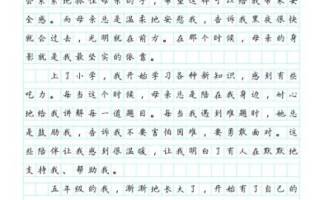 全感。而母亲总是温柔地安慰我，告诉我黑夜很快
就会过去，光明就在前方。在那个时候，母亲的身
影就是我最坚实的依靠。
上了小学，我开始学习各种新知识，感到有些
吃力。每当这个时候，母亲总是陪在我身边，耐心
地给我讲解每一道题目。每当我遇到难题时，她总
是鼓励我，告诉我不要害怕困难，要勇敢面对。这
些陪伴让我感到很温暖，让我明白了有人在默默地
支持我、帮助我。
五年级的我，渐渐地长大了，开始有了自己的